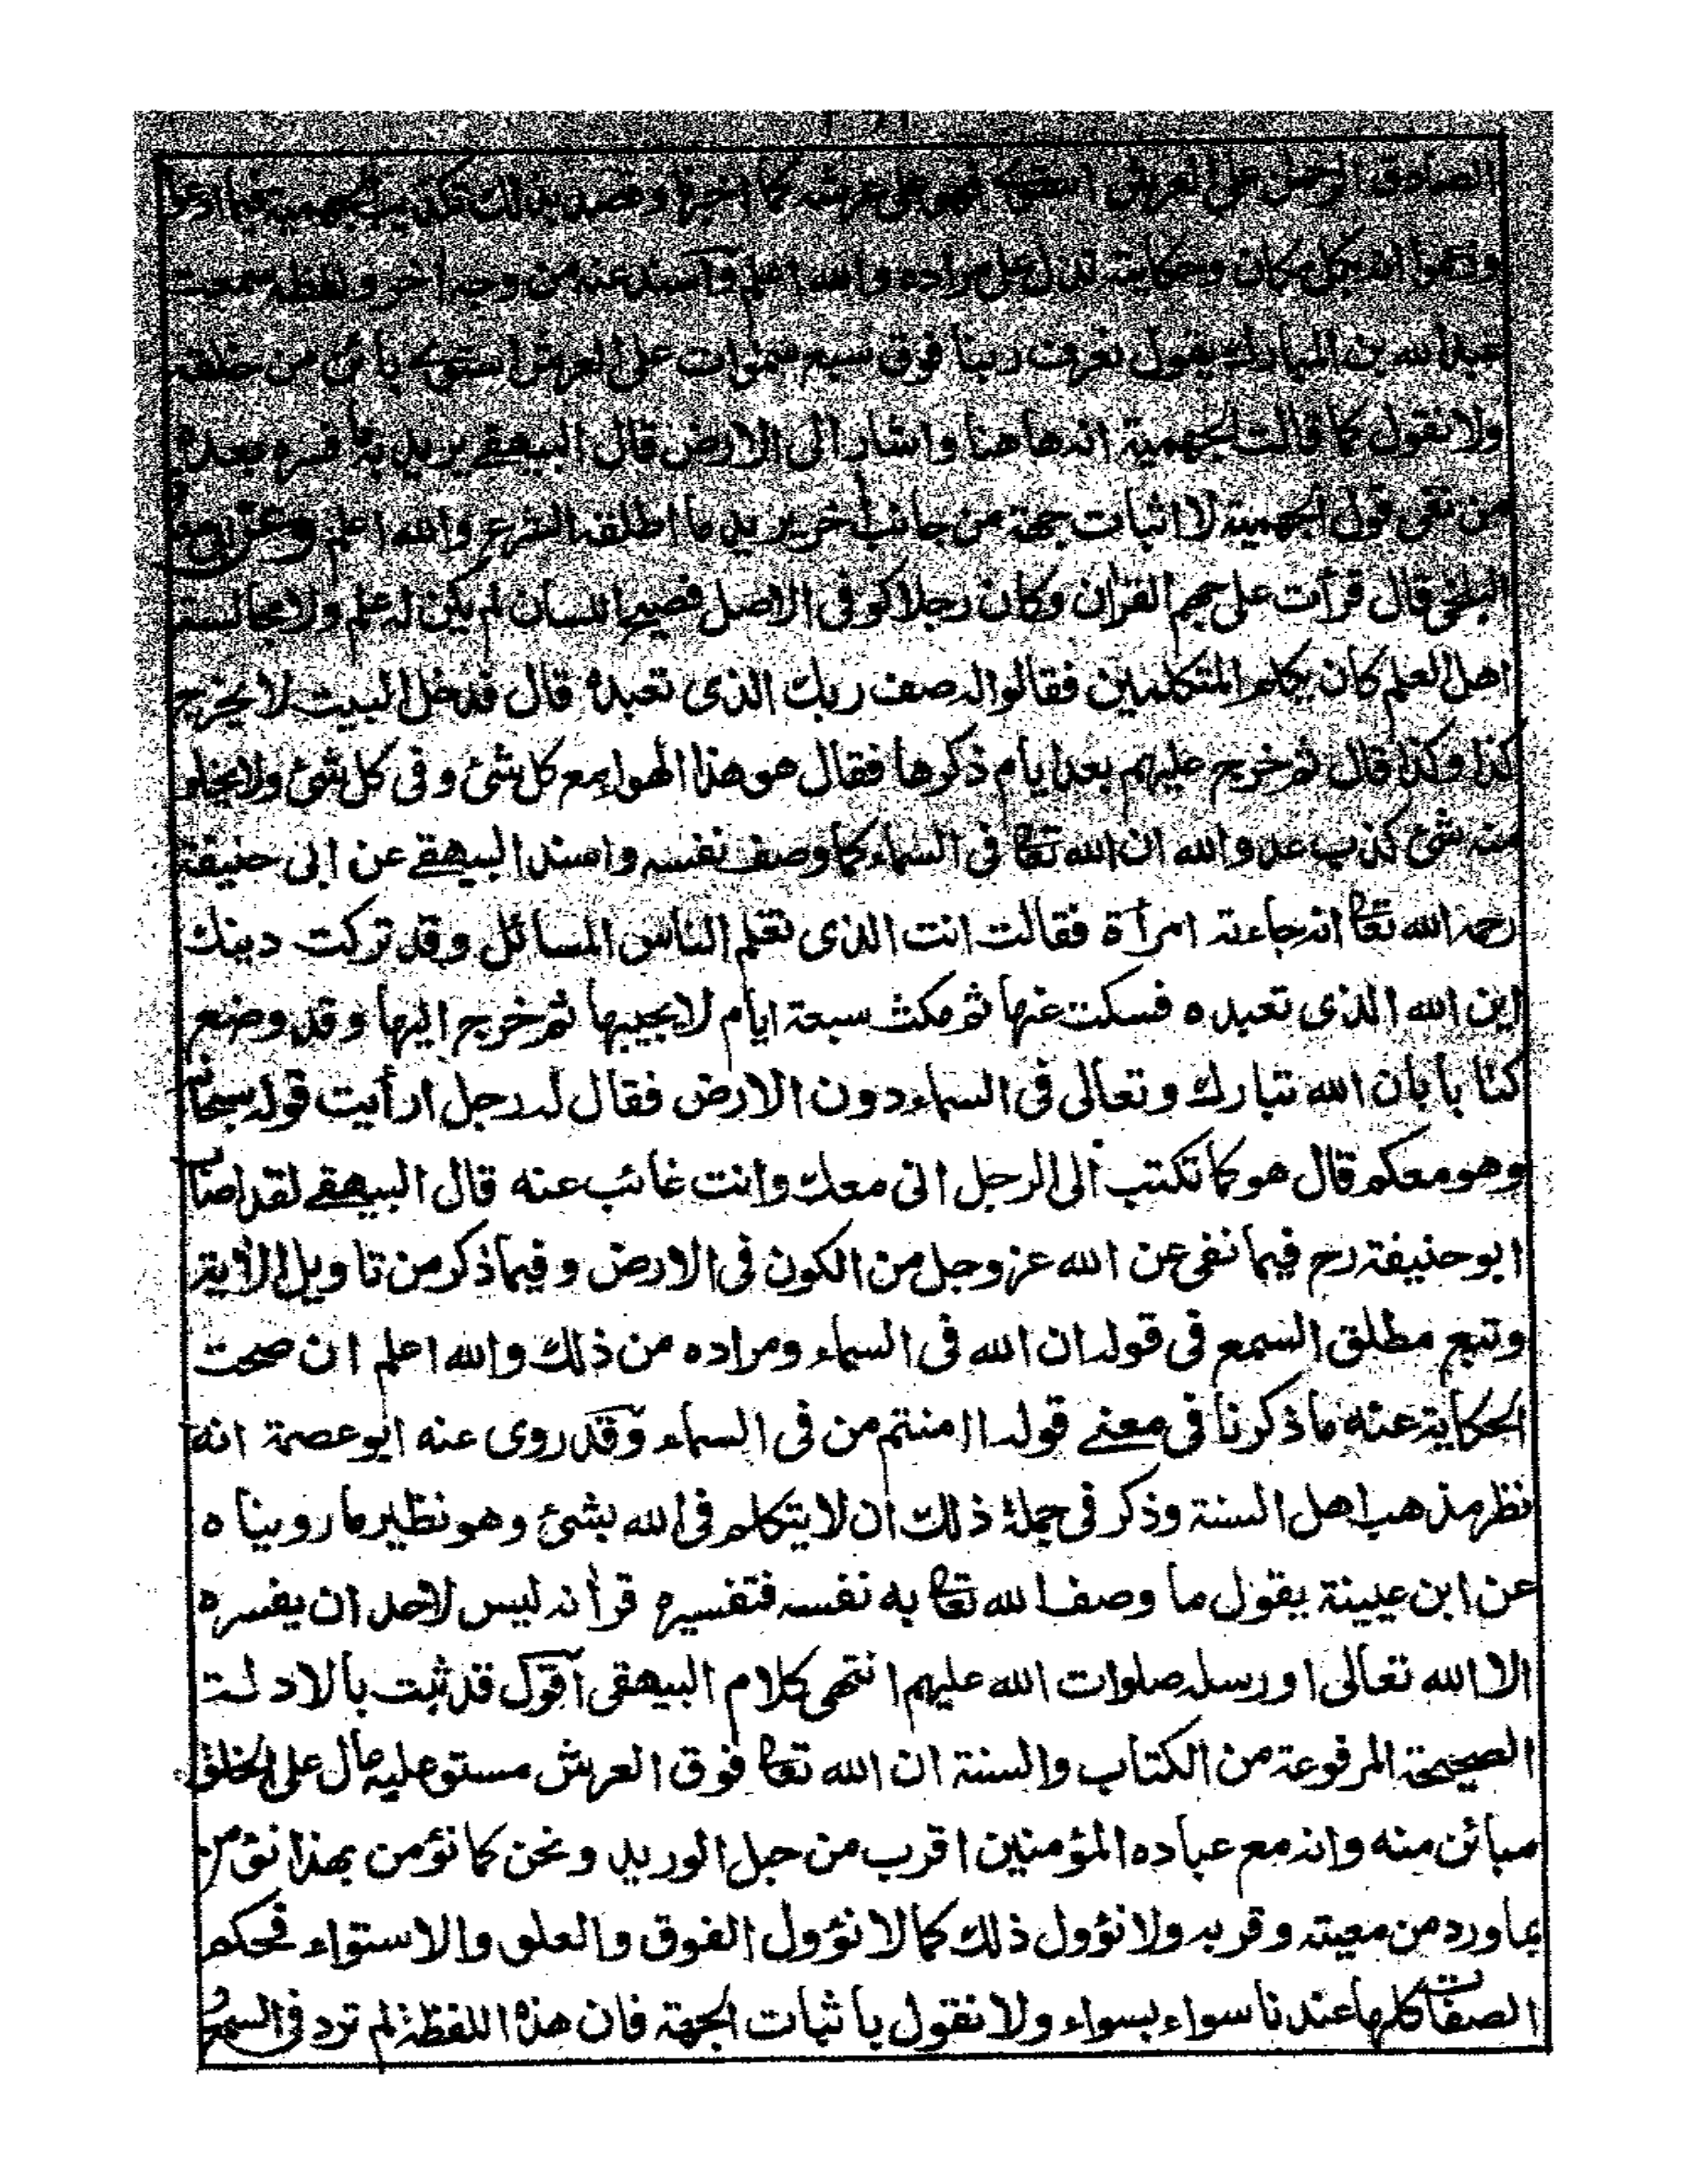 الصادق الرحمن على العرش استوى فهو على عرشه كما اخبر وقصد بذلك تكذيب الجهمية فيما ادعا
وزعموا انه بكل مكان وحكايته تدل على مراده والله اعلم وآسند عنه من وجه اخر ولفظه سمعت
عبدالله بن المبارك يقول نعرف ربنا فوق سبع سموات على العرش استوى بائن من خلقه
ولا نقول كما قالت الجهمية انه هاهنا واشار الى الارض قال البيهقے يريد به ما فسره بعده
من نفى قول الجهمية لا اثبات جهة من جانب اخر يريد ما اطلقه الشرع والله اعلم وعن ابي معا
البلخى قال قرأت على جهم القرآن وكان رجلا كوفى الاصل فصيح اللسان لم يكن له علم ولا مجالسة
اهل العلم كان يكلم المتكلمين فقالوا له صف ربك الذى تعبده قال فدخل البيت لا يخرج
كذا وكذا قال ثم خرج عليهم بعد ايام ذكرها فقال هو هذا الهوا مع كل شئ وفى كل شئ ولا يخلو
منه شئ كذب عدو الله ان الله تعا فى السماء كما وصف نفسه واسند البيهقے عن ابى حنيفة
رحمه الله تعا انه جاءته امرأة فقالت انت الذى تعلم الناس المسائل وقد تركت دينك
اين الله الذى تعبده فسكت عنها ثم مكث سبعة ايام لا يجيبها ثم خرج اليها وقد وضع
كتابا بان الله تبارك وتعالى فى السماء دون الارض فقال له رجل ارأيت قوله سبحانه
وهو معكم قال هو كما تكتب الى الرجل انى معك وانت غائب عنه قال البيهقے لقد اصاب
ابوحنيفة رح فيما نفى عن الله عز وجل من الكون فى الارض وفيما ذكر من تاويل الآية
وتبع مطلق السمع فى قوله ان الله فى السماء ومراده من ذلك والله اعلم ان صحت
الحكاية عنه ما ذكرنا فى معنے قوله اامنتم من فى السماء وقد روى عنه ابوعصمة انه
نظر مذهب اهل السنة وذكر فى جملة ذلك ان لا يتكلم فى الله بشئ وهو نظير ما رويناه
عن ابن عيينة يقول ما وصف الله تعا به نفسه فتفسيره قرأنه ليس لاحد ان يفسره
الا الله تعالى او رسله صلوات الله عليهم انتهى كلام البيهقى اقول قد ثبت بالادلة
الصحيحة المرفوعة من الكتاب والسنة ان الله تعا فوق العرش مستو عليه عال على الخلق
مبائن منه وانه مع عباده المؤمنين اقرب من حبل الوريد ونحن كما نؤمن بهذا نؤمن
بما ورد من معيته وقربه ولا نؤول ذلك كما لا نؤول الفوق والعلو والاستواء فحكم
الصفات كلها عندنا سواء بسواء ولا نقول باثبات الجهة فان هذه اللفظة لم ترد فى السمع